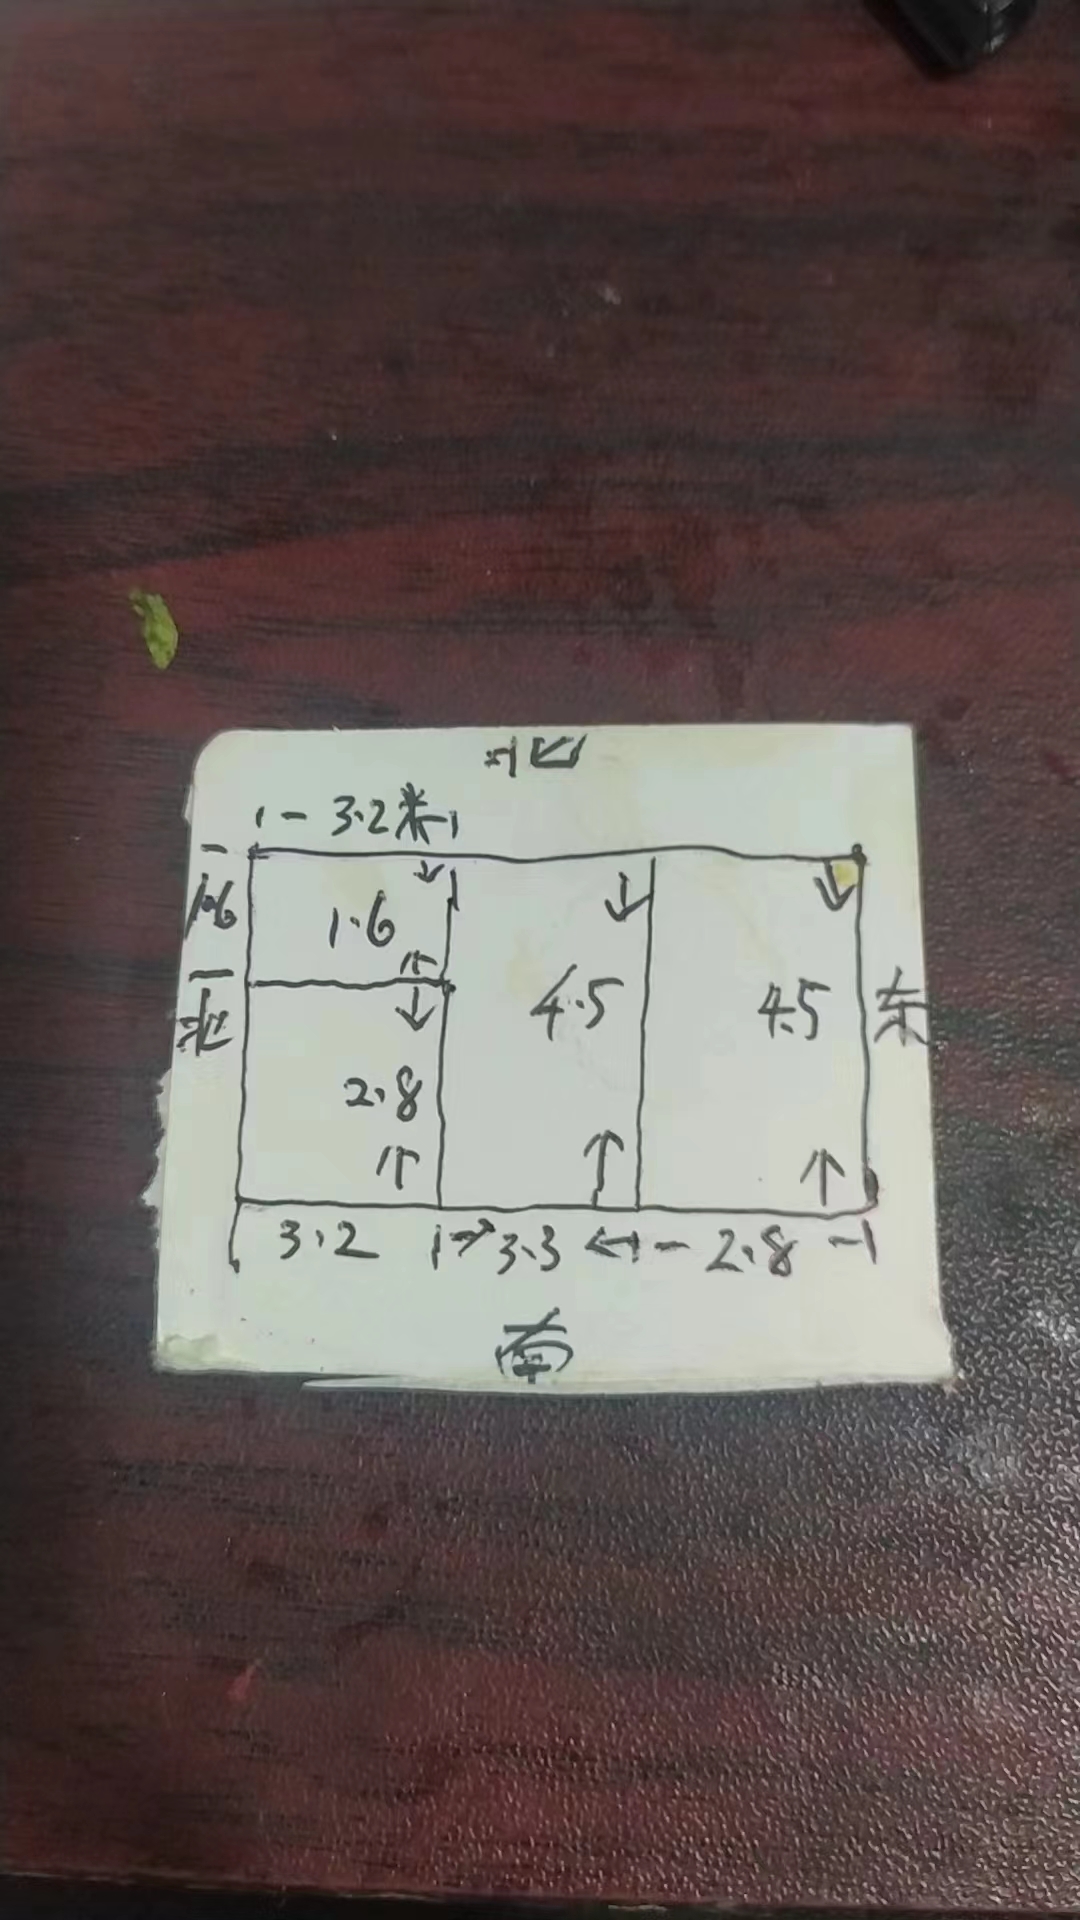 3.2米
1.6
1.6
4.5
4.5
东
2.8
3.2
3.3
2.8
南